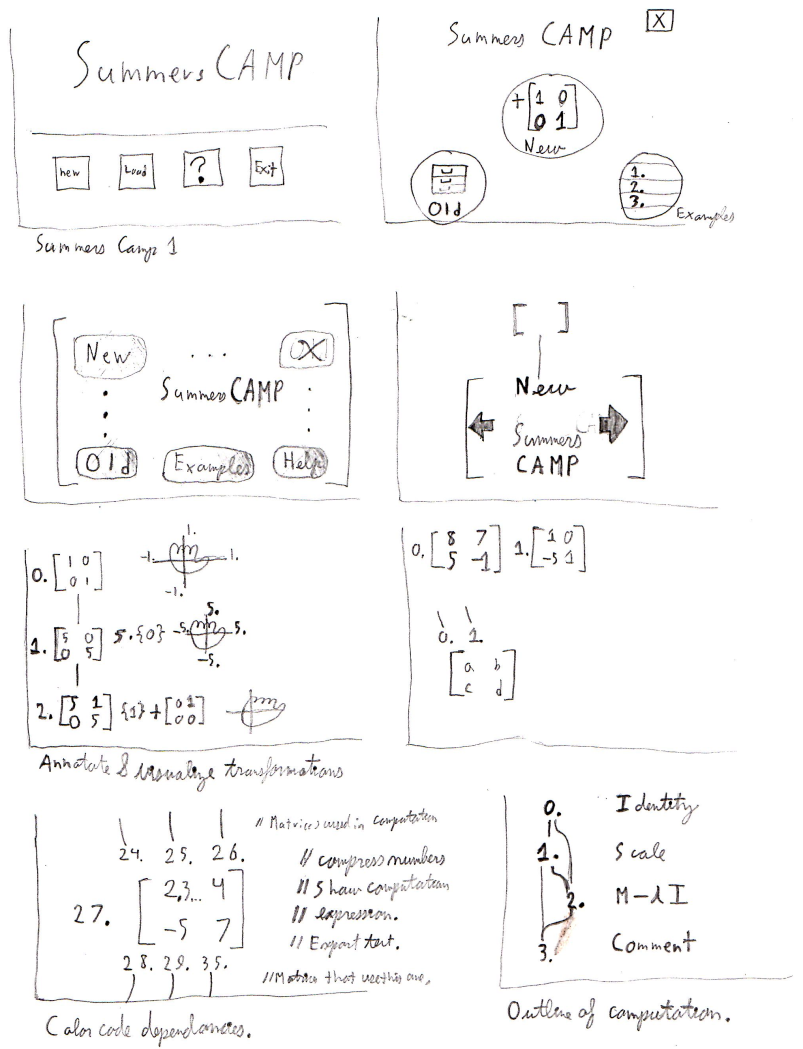 Summers CAMP
new Load ? Exit
Summers Camp 1
Summers CAMP X
+[1 0
0 1]
New
Old
1.
2.
3.
Examples
New ... X
Summers CAMP
Old Examples Help
[ ]
New
Summers
CAMP
0. [1 0
0 1]
1.
-1. 1.
-1.
1. [5 0
0 5] 5.{0}
5.
-5. 5.
-5.
2. [5 1
0 5] {1}+[0 1
0 0]
Annotate & visualize transformations
0. [8 7
5 -1] 1. [1 0
-5 1]
0. 1.
[a b
c d]
24. 25. 26.
27. [2.3... 4
-5 7]
28. 29. 35.
// Matrices used in computation
// compress numbers
// Show computation
// expression.
// Export text.
// Matrices that use this one.
Color code dependancies.
0. Identity
1. Scale
2. M-λI
3. Comment
Outline of computation.